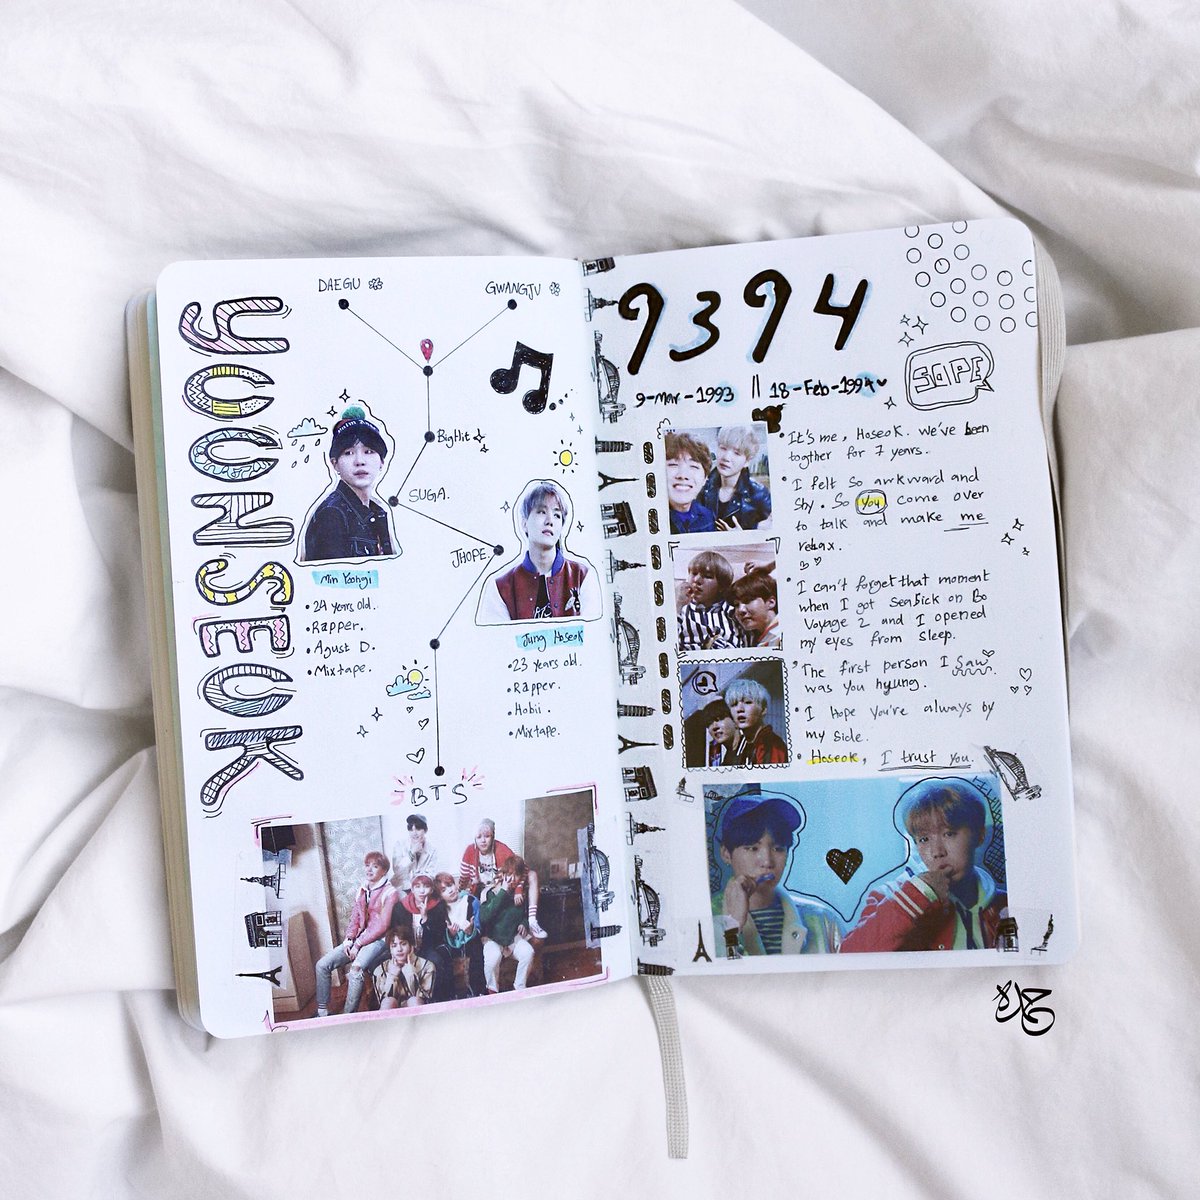 YOONSEOK
DAEGU
GWANGJU
BigHit
SUGA.
JHOPE.
Min Yoongi
• 24 years old.
• Rapper.
• Agust D.
• Mixtape.
Jung Hoseok
• 23 years old.
• Rapper.
• Hobii.
• Mixtape.
BTS
9394
9-Mar-1993 || 18-Feb-1994
SOPE
• It's me, Hoseok. We've been
togther for 7 years.
• I felt so awkward and
shy. So you come over
to talk and make me
relax.
• I can't forget that moment
when I got seasick on Bo
Voyage 2 and I opened
my eyes from sleep.
• The first person I saw
was you hyung.
• I hope you're always by
my side.
• Hoseok, I trust you.